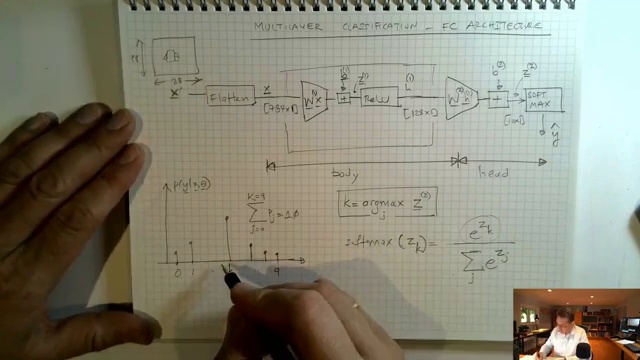 MULTILAYER CLASSIFICATION - FC ARCHITECTURE
28
28
X
Flatten
x
[784x1]
W x
b(1)
+
z(1)
ReLU
h(1)
[128x1]
W(2) h(1)
b(2)
+
z(2)
[10x1]
SOFT
MAX
ŷ
body
head
p(y|x,θ)
K=9
Σ Pj = 1.0
j=0
K = argmax z(2)
j
softmax (zk) = e^zk
Σ e^zj
j
0 1 9